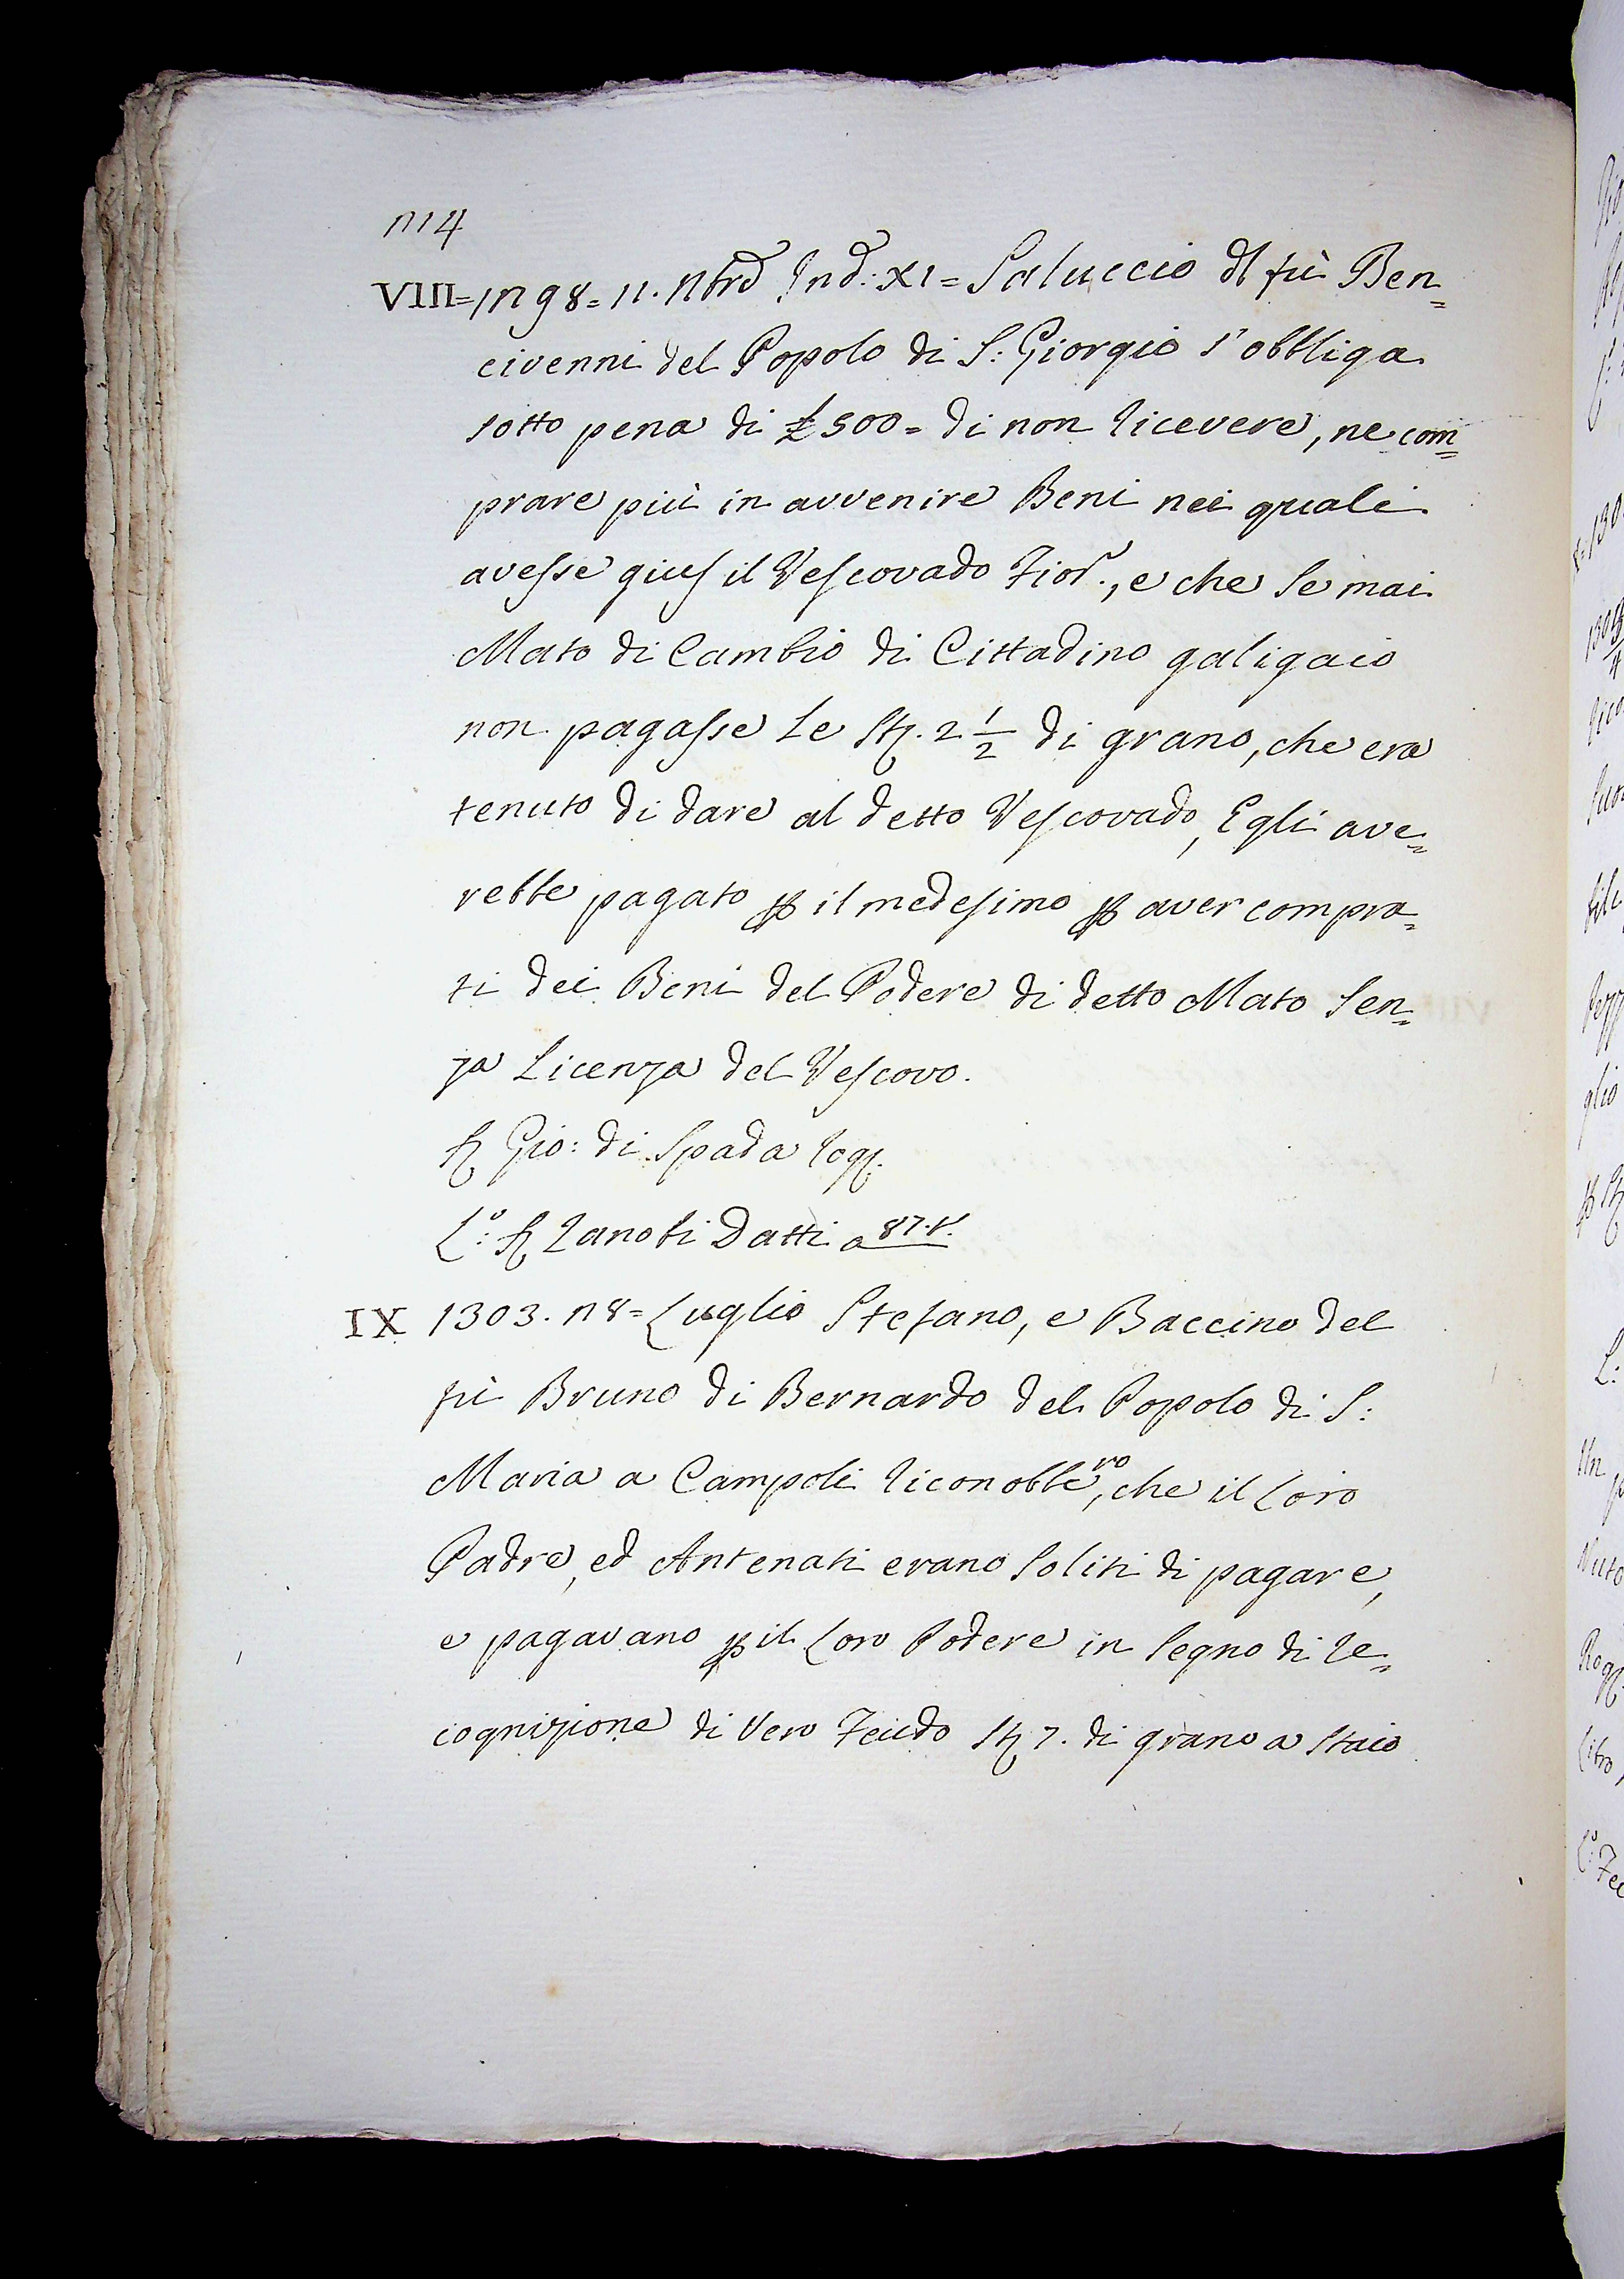 214
VIII = 1298 = 11. Nbre Ind: XI = Saluccio dl fù Ben=
civenni del Popolo di S: Giorgio s'obbliga
sotto pena di £ 500 = di non ricevere, ne com=
prare più in avvenire Beni nei quali
avesse gius il Vescovado Fior., e che se mai
Mato di Cambio di Cittadino galigaio
non pagasse le st. 2 1/2 di grano, che era
tenuto di dare al detto Vescovado, Egli ave=
rebbe pagato p il medesimo p aver compra=
ti dei Beni del Podere di detto Mato sen=
za Licenza del Vescovo.
Sr Gio: di Spada rog.
L.o: Sr Zanobi Datti a 87.t.
IX 1303. 28 = Luglio Stefano, e Baccino del
fù Bruno di Bernardo del Popolo di S:
Maria a Campoli riconobbero, che il Loro
Padre, ed Antenati erano soliti di pagare,
e pagavano p il Loro Podere in segno di re=
cognizione di Vero Feudo st 7. di grano a staio